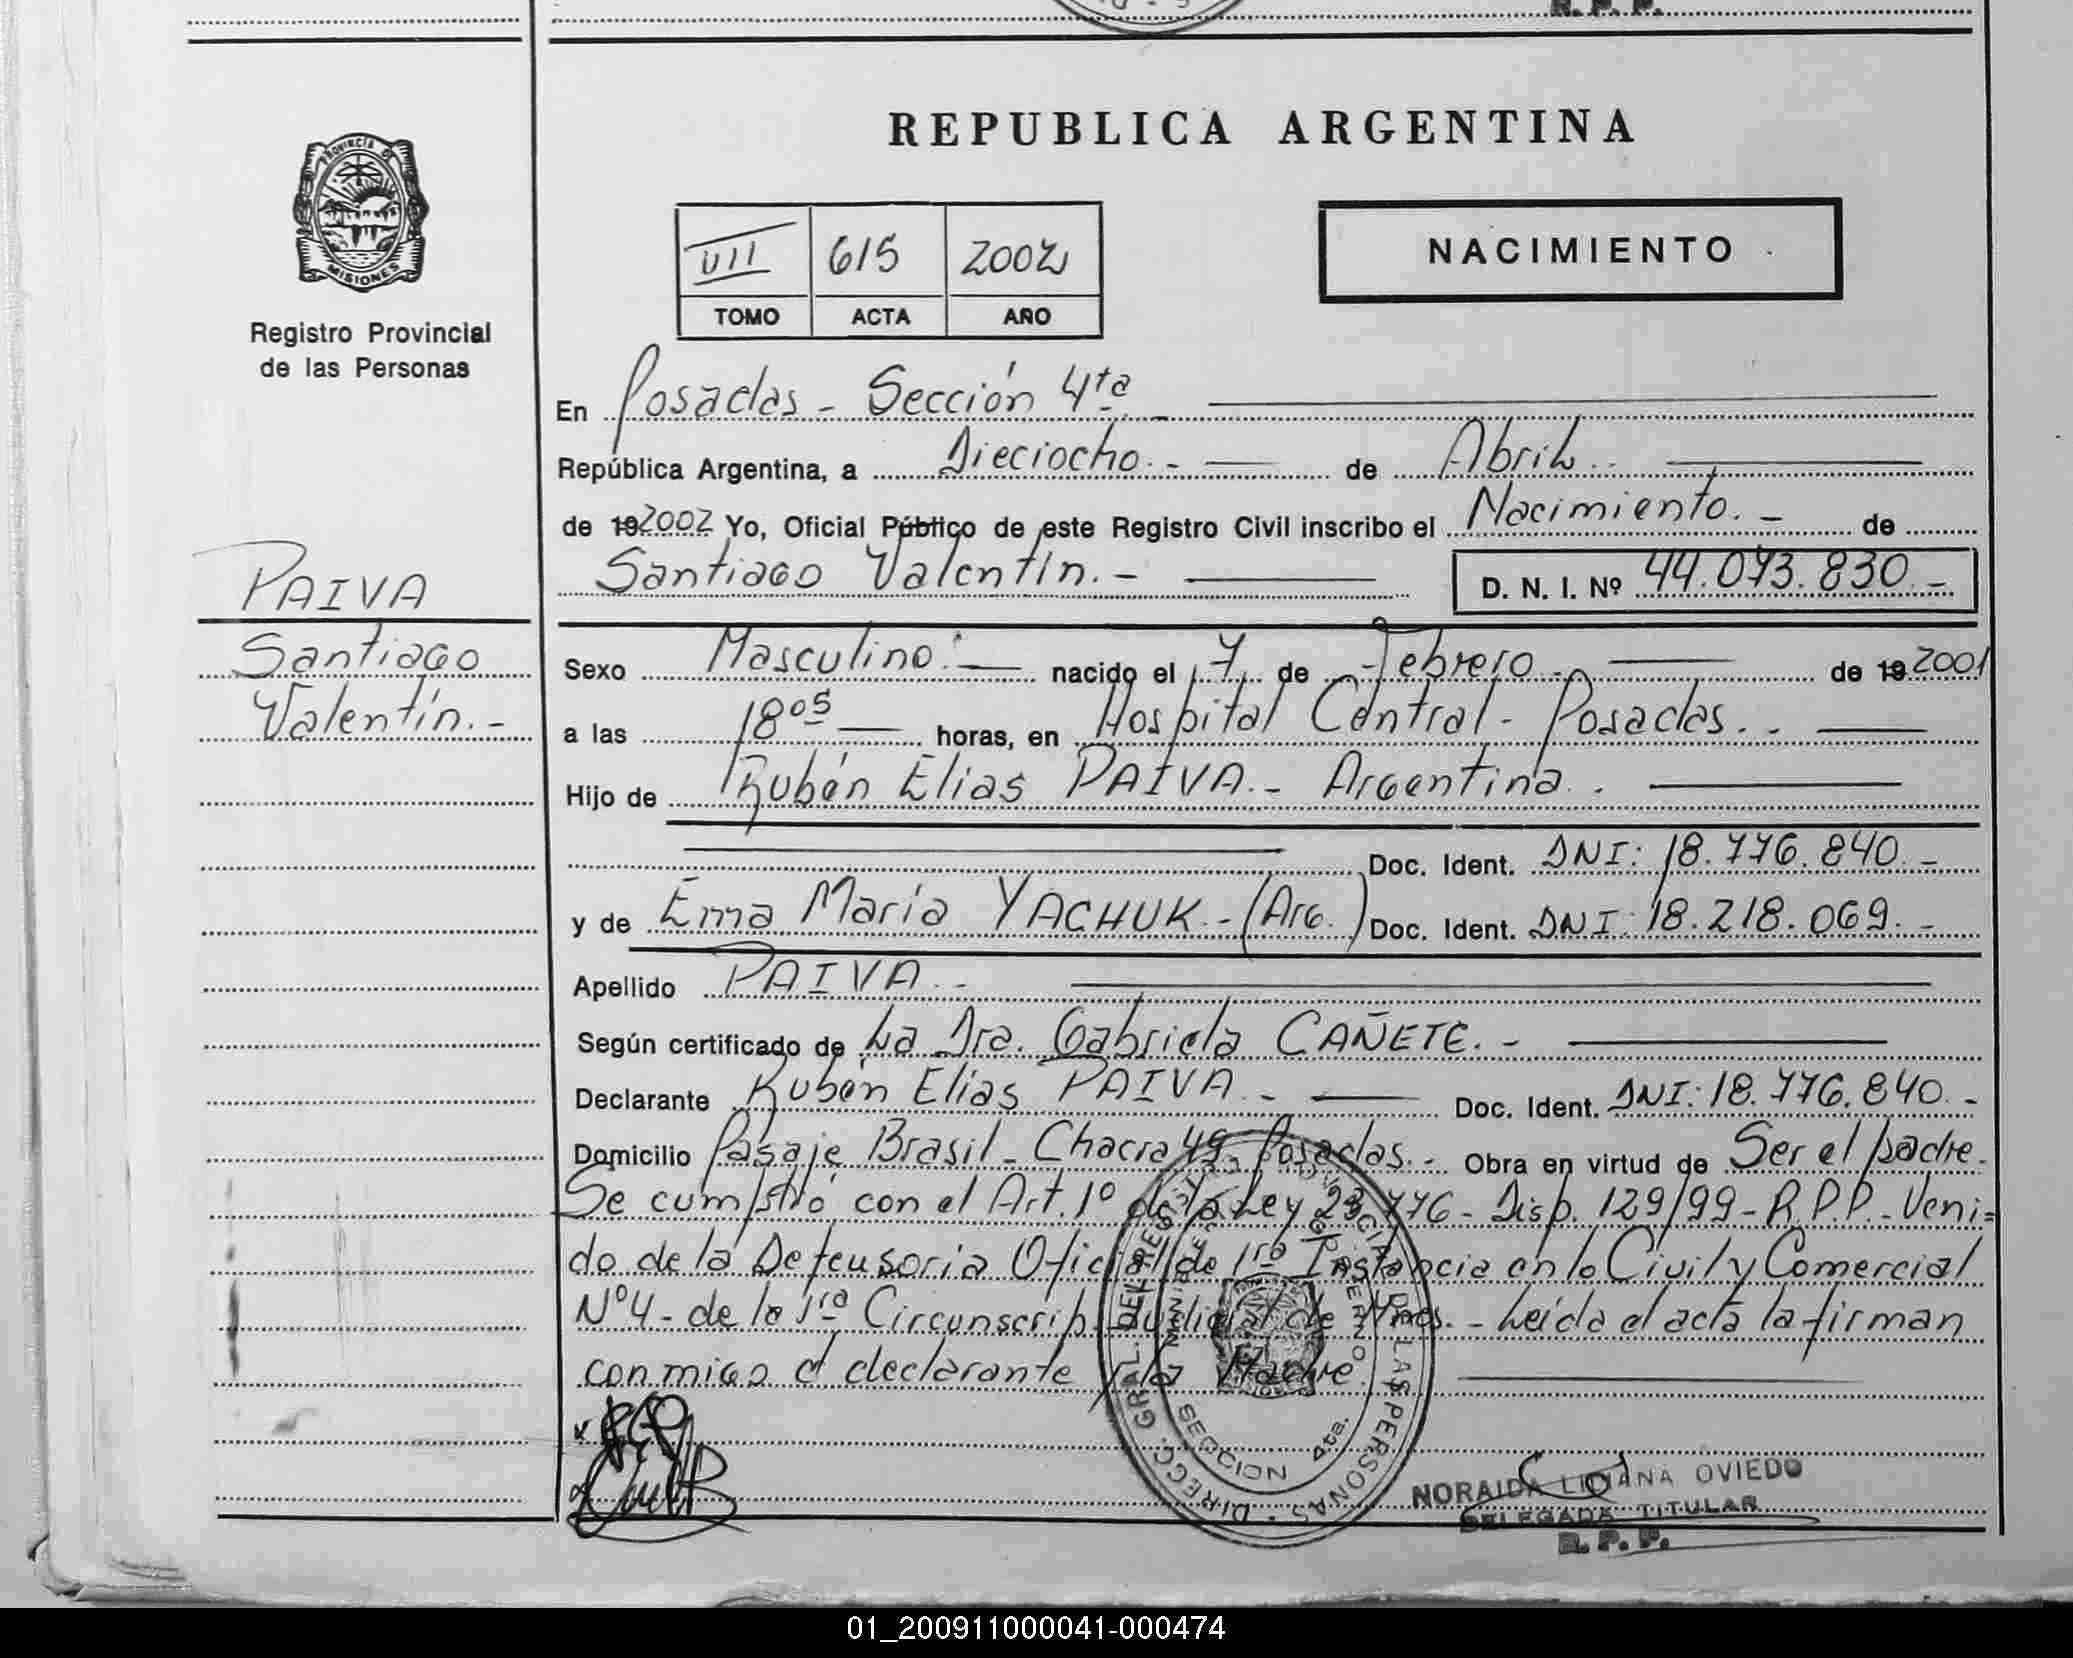 R. P. P.
REPUBLICA ARGENTINA
PROVINCIA DE
MISIONES
VII 615 2002
TOMO ACTA AÑO
NACIMIENTO
Registro Provincial
de las Personas
En Posadas - Sección 4ta -
República Argentina, a Dieciocho.- de Abril.-
de 19 2002 Yo, Oficial Público de este Registro Civil inscribo el Nacimiento.- de
Santiago Valentín.- D. N. I. Nº 44.073.830.-
PAIVA
Santiago
Valentín.-
Sexo Masculino.- nacido el 7 de Febrero.- de 19 2001
a las 18 05 horas, en Hospital Central - Posadas.-
Hijo de Rubén Elias PAIVA.- Argentina.-
Doc. Ident. DNI: 18.776.840.-
y de Ema María YACHUK.- (Arg.) Doc. Ident. DNI: 18.218.069.-
Apellido PAIVA.-
Según certificado de La Dra. Gabriela CAÑETE.-
Declarante Rubén Elias PAIVA.- Doc. Ident. DNI: 18.776.840.-
Domicilio Pasaje Brasil - Chacra 49 - Posadas.- Obra en virtud de Ser el padre.-
Se cumplió con el Art. 1º de la Ley 23.776 - Disp. 129/99 - R.P.P. - Veni=
do de la Defensoria Oficial de 1ra Instancia en lo Civil y Comercial
Nº 4 - de la 1ra Circunscrip. Judicial de Mnes. - Leída el acta la firman
conmigo el declarante y la Madre.
DIRECC. GRAL. DEL REGISTRO PROVINCIAL DE LAS PERSONAS
SECCION 4ta.
NORAIDA LILIANA OVIEDO
DELEGADA TITULAR
R. P. P.
01_200911000041-000474